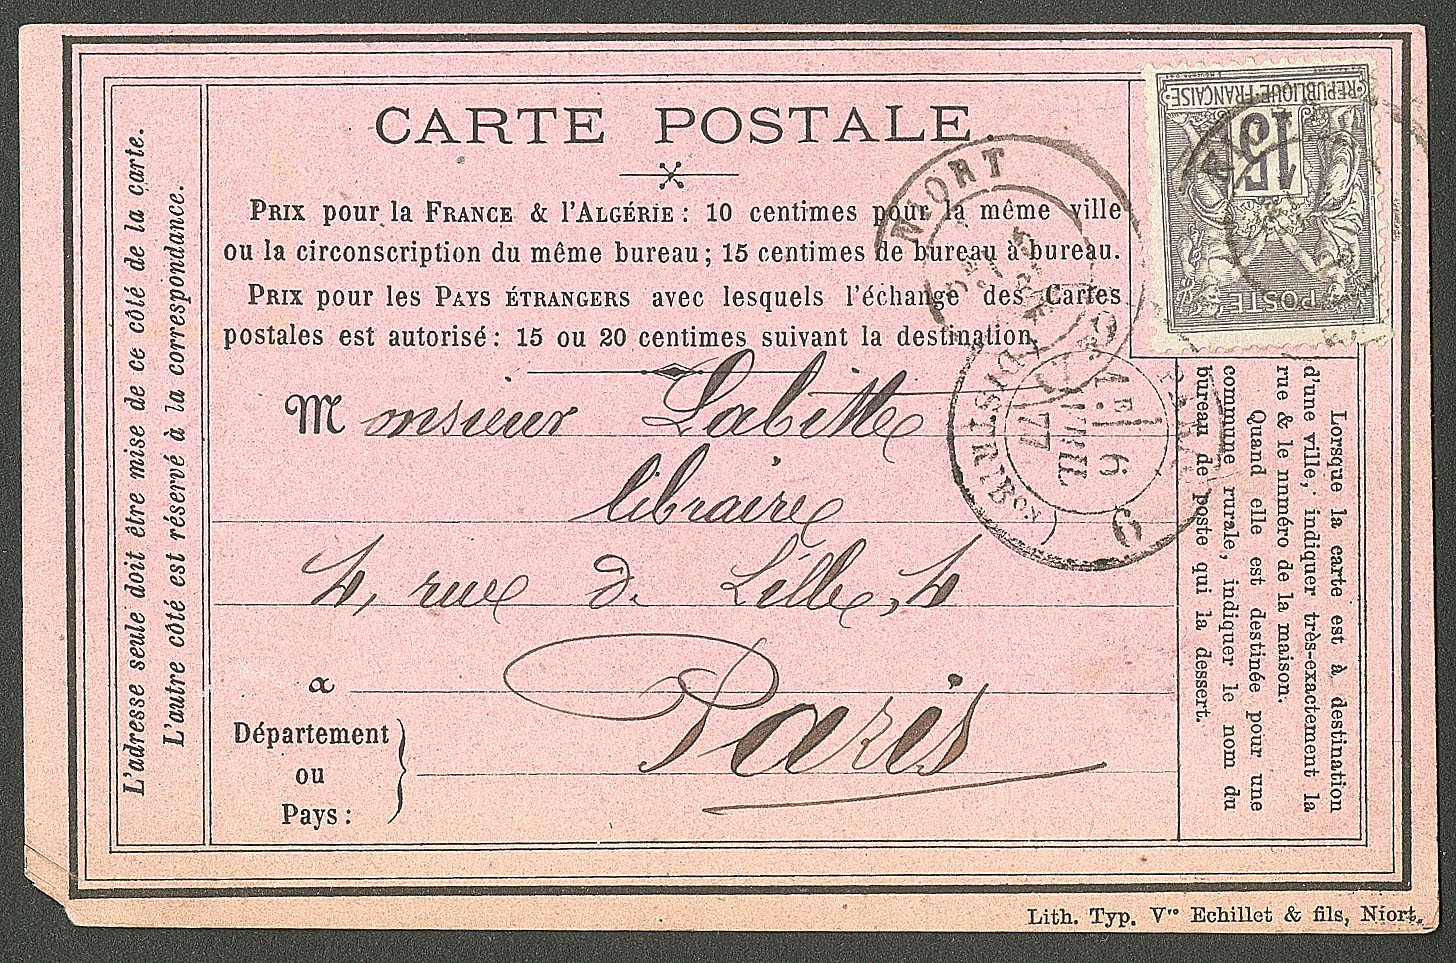 CARTE POSTALE.
PRIX pour la FRANCE & l'ALGÉRIE : 10 centimes pour la même ville
ou la circonscription du même bureau ; 15 centimes de bureau à bureau.
PRIX pour les PAYS ÉTRANGERS avec lesquels l'échange des Cartes
postales est autorisé : 15 ou 20 centimes suivant la destination.
Monsieur Labitte
libraire
4, rue de Lille, 4
a Paris
Département
ou
Pays :
L'adresse seule doit être mise de ce côté de la carte.
L'autre côté est réservé à la correspondance.
Lorsque la carte est à destination
d'une ville, indiquer très-exactement la
rue & le nnméro de la maison.
Quand elle est destinée pour une
commune rurale, indiquer le nom du
bureau de poste qui la dessert.
REPUBLIQUE FRANÇAISE
15
POSTE
NIORT
PARIS
DISTRIBON
1E
6
AVRIL
77
6
Lith. Typ. Vve Echillet & fils, Niort.